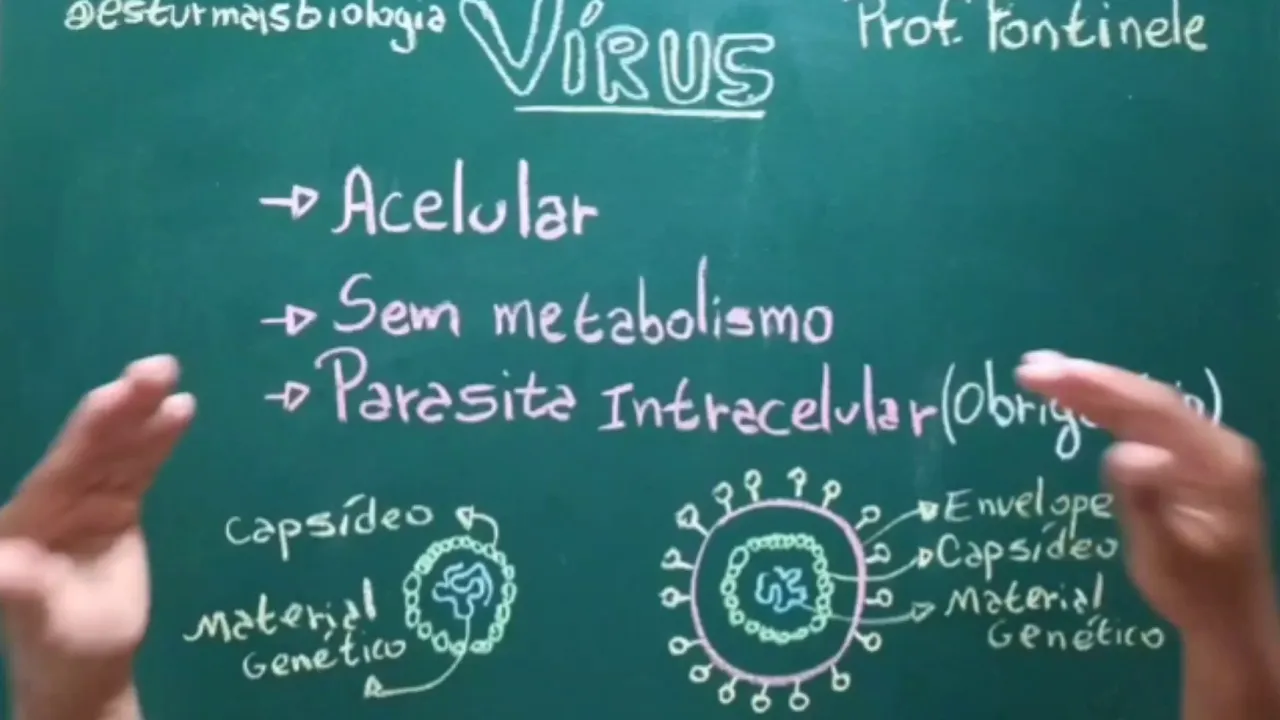 @esturmaisbiologia
VÍRUS
Prof. Pontinele
Acelular
Sem metabolismo
Parasita Intracelular
Capsídeo
Material
Genético
Envelope
Capsídeo
Material
Genético